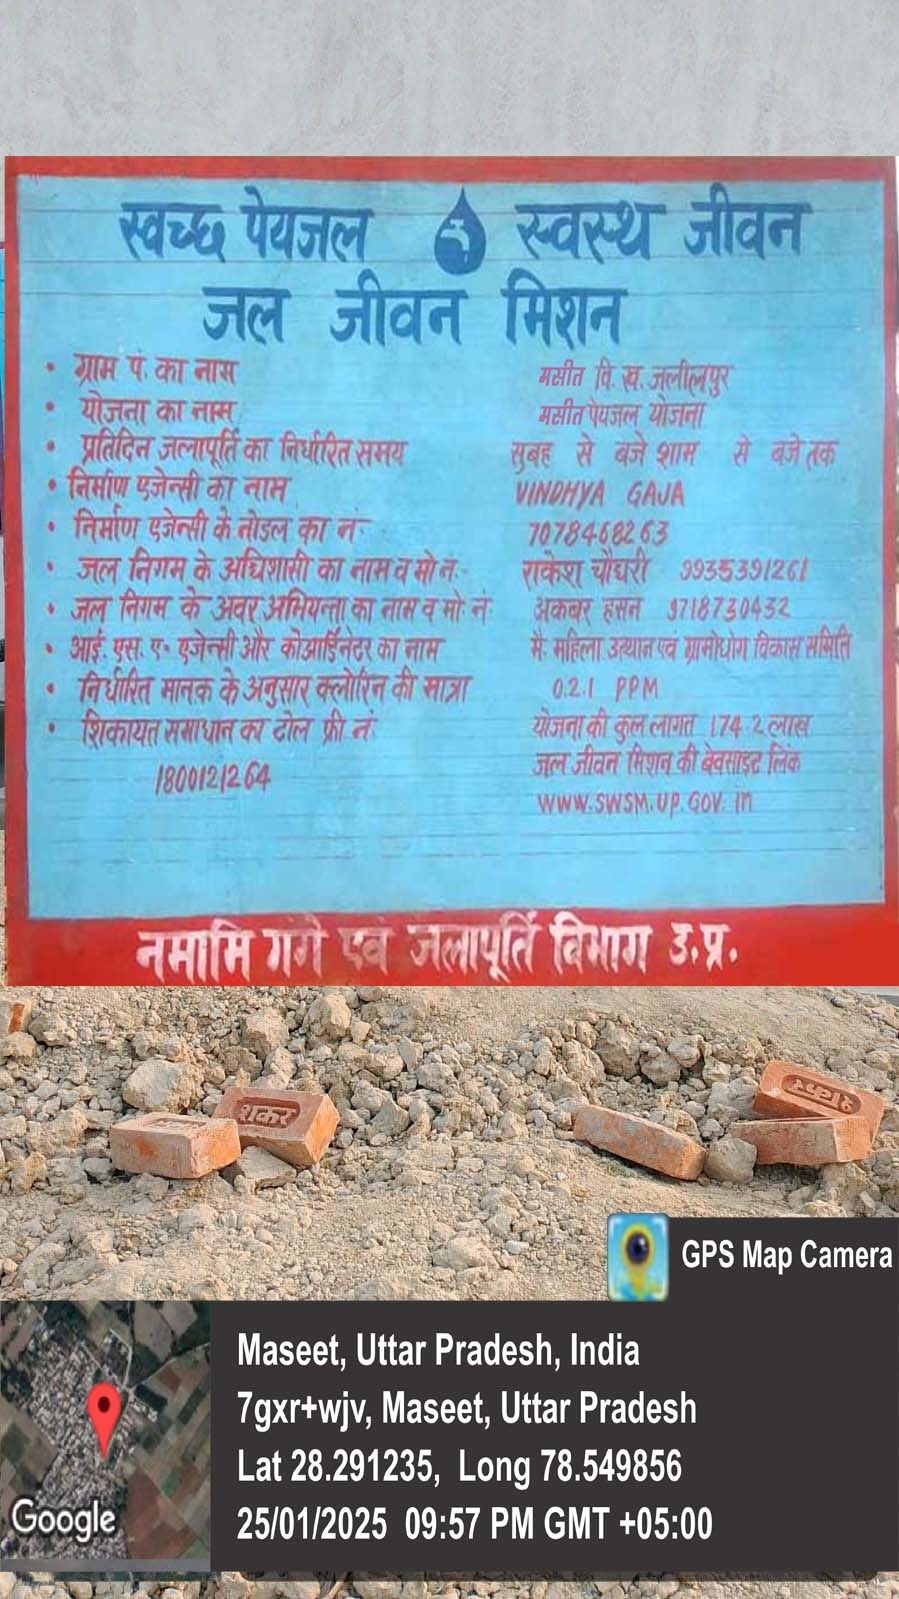 स्वच्छ पेयजल स्वस्थ जीवन
जल जीवन मिशन
• ग्राम पं. का नाम मसीत वि. ख. जलीलपुर
• योजना का नाम मसीत पेयजल योजना
• प्रतिदिन जलापूर्ति का निर्धारित समय सुबह से बजे शाम से बजे तक
• निर्माण एजेन्सी का नाम VINDHYA GAJA
• निर्माण एजेन्सी के नोडल का नं- 7078468263
• जल निगम के अधिशासी का नाम व मो नं.- राकेश चौधरी 9935391261
• जल निगम के अवर अभियन्ता का नाम व मो. नं- अकबर हसन 9718730432
• आई. एस. ए- एजेन्सी और कोआर्डिनेटर का नाम मै. महिला उत्थान एवं ग्रामोधोग विकास समिति
• निर्धारित मानक के अनुसार क्लोरिन की मात्रा 0.2.1 PPM
• शिकायत समाधान का टोल फ्री नं. योजना की कुल लागत 174.2 लाख
1800121264 जल जीवन मिशन की वेवसाइट लिंक
www.swsm.up.gov.in
नमामि गंगे एवं जलापूर्ति विभाग उ.प्र.
शकर
शकर
GPS Map Camera
Maseet, Uttar Pradesh, India
7gxr+wjv, Maseet, Uttar Pradesh
Lat 28.291235, Long 78.549856
25/01/2025 09:57 PM GMT +05:00
Google